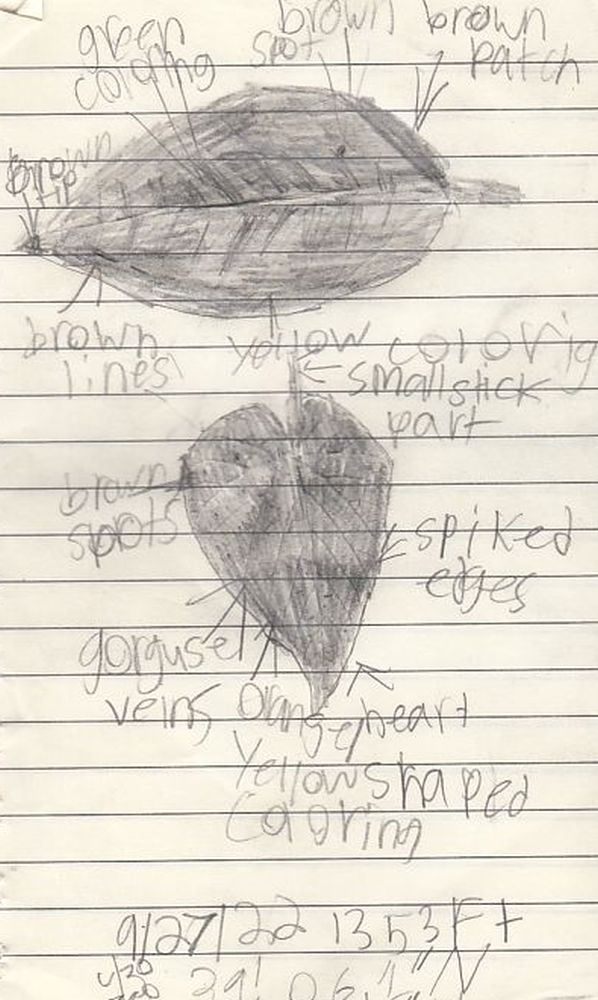 green
coloring
brown
spot
brown
patch
brown
tip
brown
lines
yellow colorig
small stick
part
brown
spots
spiked
edges
gorgusel
veins
orange/
yellow
coloring
heart
shaped
9/27/22 1353 Ft
39° 06.1" N